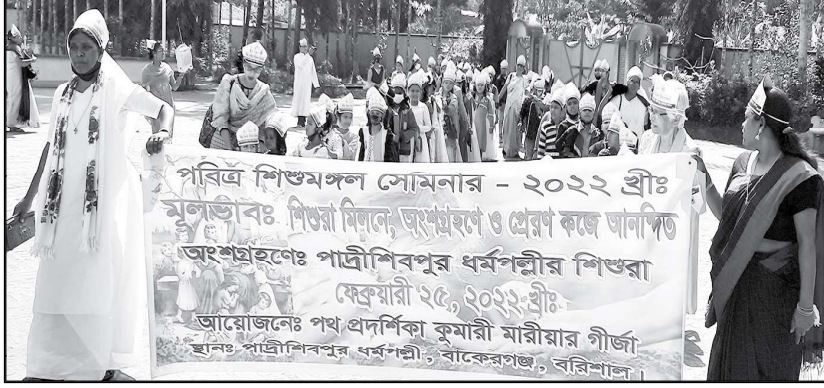 পবিত্র শিশুমঙ্গল সেমিনার - ২০২২ খ্রীঃ
মূলভাবঃ শিশুরা মিলনে, অংশগ্রহণে ও প্রেরণ কজে আনন্দিত
অংশগ্রহণেঃ পাদ্রীশিবপুর ধর্মপল্লীর শিশুরা
ফেব্রুয়ারী ২৫, ২০২২ খ্রীঃ
আয়োজনেঃ পথ প্রদর্শিকা কুমারী মারীয়ার গীর্জা
স্থানঃ পাদ্রীশিবপুর ধর্মপল্লী, বাকেরগঞ্জ, বরিশাল।